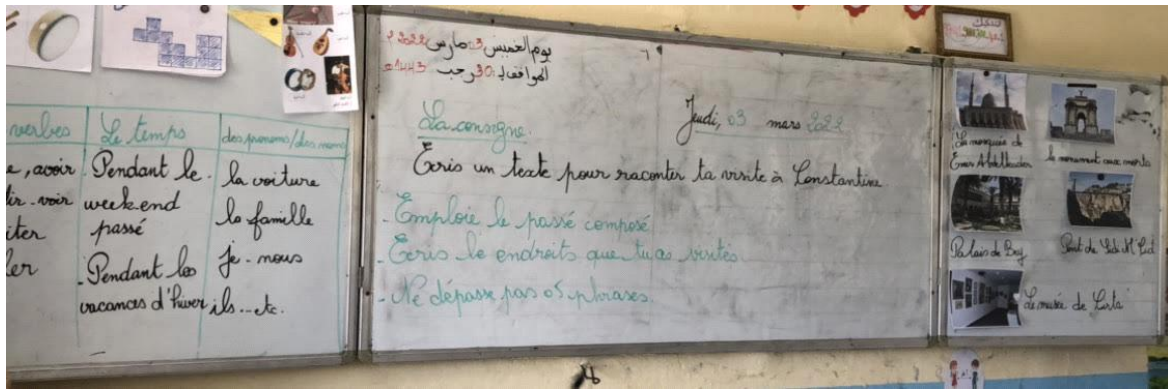 verbes
e, avoir
tir-voir
iter
ler
Le temps
Pendant le
week-end
passé
-Pendant les
vacances d'hiver
des pronoms/des noms
la voiture
la famille
je-nous
ils...etc.
يوم الخميس 03 مارس 2022
الموافق لـ: 30 رجب 1443هـ
Jeudi, 03 mars 2022
La consigne.
Ecris un texte pour raconter ta visite à Constantine
-Emploie le passé composé
-Ecris le endroits que tu as visités.
-Ne dépasse pas 05 phrases.
La mosquée de
Emir Abdelkader
le monument aux morts
Palais de Bey
Pont de Sidi M'Cid
Le musée de Cirta